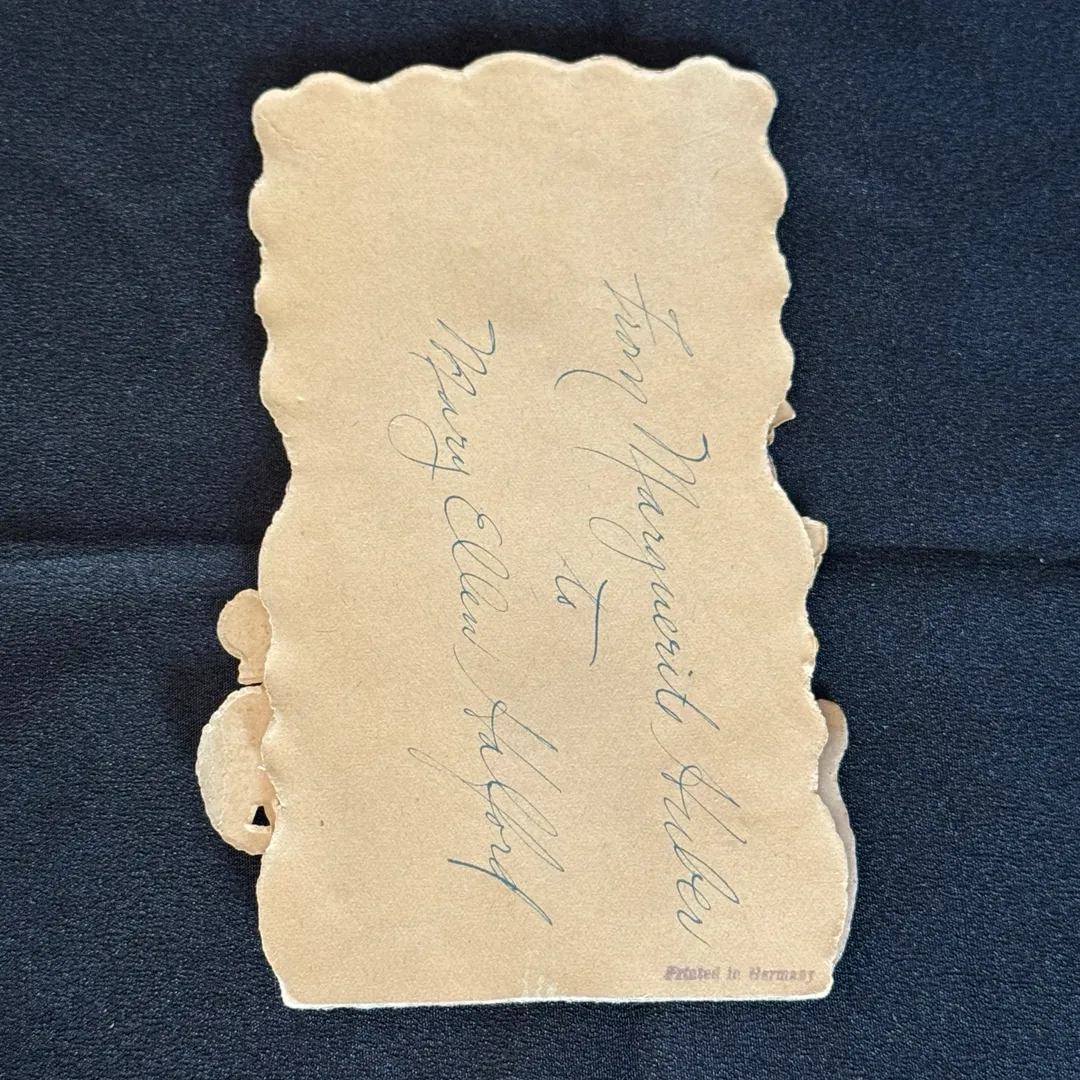 from Marguerite Huber
to
Mary Ellen Safford
Printed in Germany